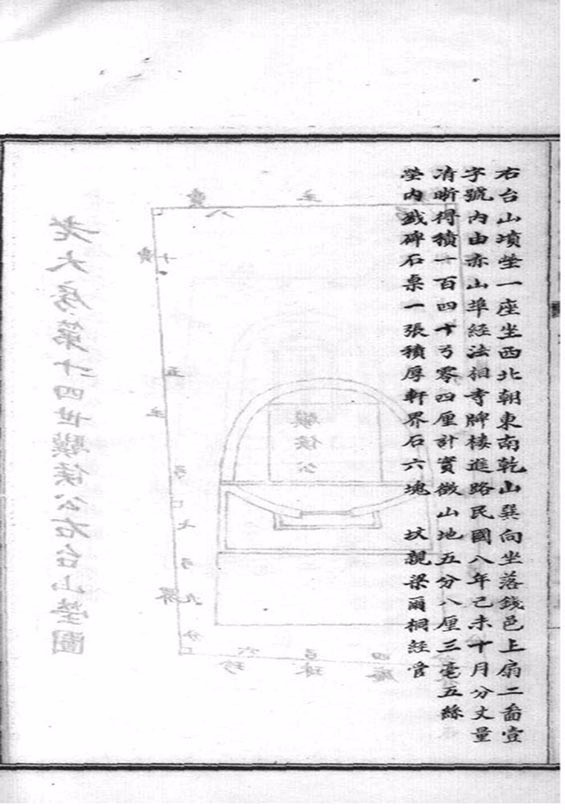 右台山墳塋一座坐西北朝東南乾山巽向坐落錢邑上扇二啚壹
字號內由赤山埠經法相寺牌樓進路民國八年己未十月分丈量
清晰得積一百四十弓零四厘計實徵山地五分八厘三毫五絲
塋內錢碑石桌一張積厚軒界石六塊 坟親梁爾桐經管
老大房第十四世驥侯公右台山塋圖
驥侯公